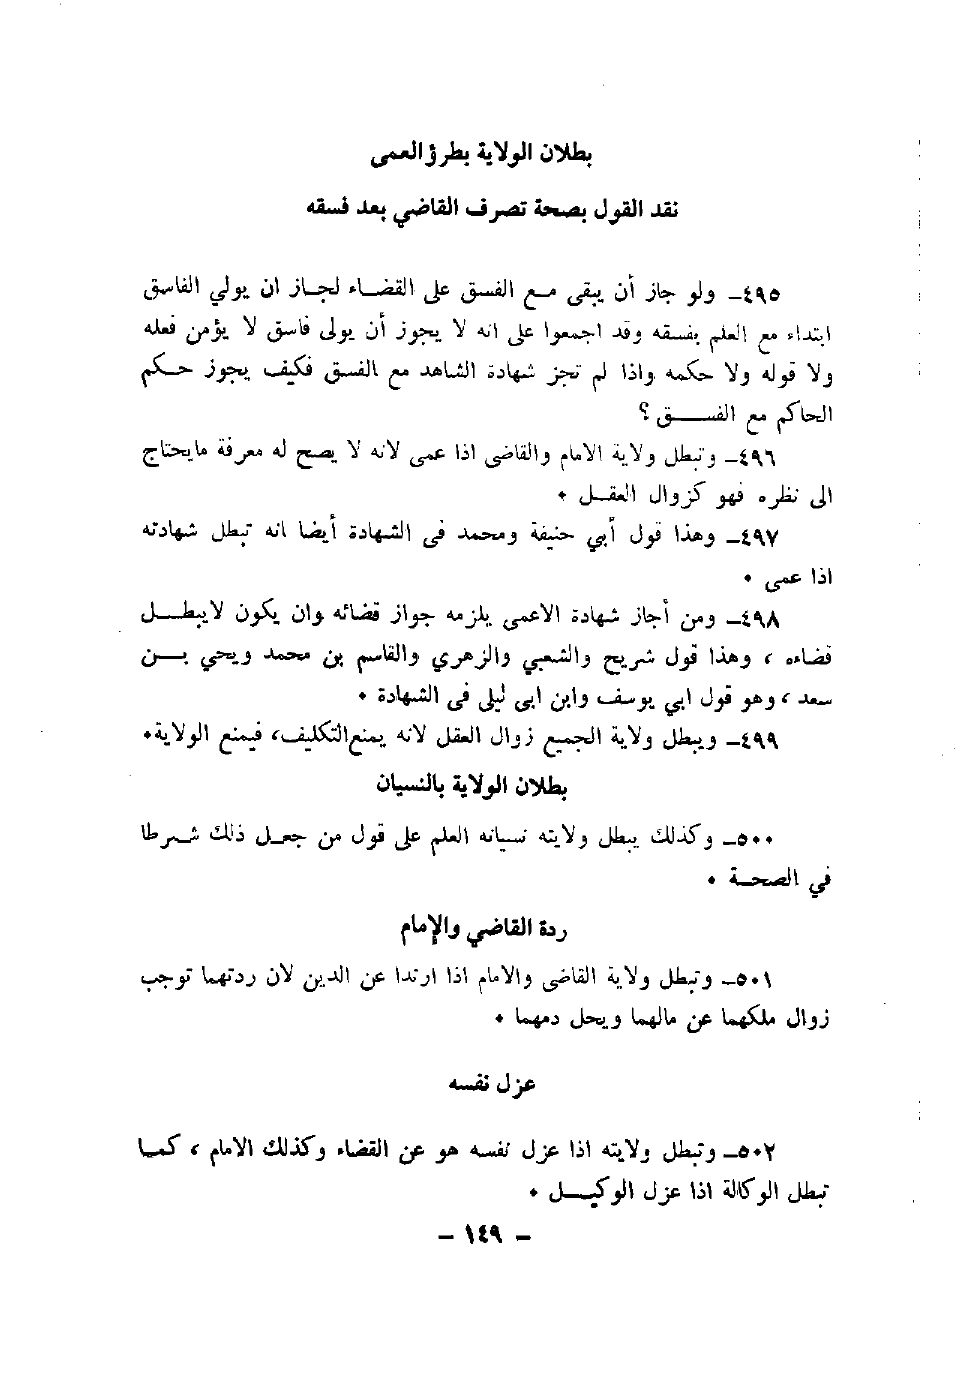 بطلان الولاية بطرؤ العمى
نقد القول بصحة تصرف القاضي بعد فسقه
٤٩٥ــ ولو جاز أن يبقى مع الفسق على القضاء لجاز ان يولي الفاسق
ابتداء مع العلم بفسقه وقد اجمعوا على انه لا يجوز أن يولى فاسق لا يؤمن فعله
ولا قوله ولا حكمه واذا لم تجز شهادة الشاهد مع الفسق فكيف يجوز حكم
الحاكم مع الفسق ؟
٤٩٦ــ وتبطل ولاية الامام والقاضى اذا عمى لانه لا يصح له معرفة مايحتاج
الى نظره فهو كزوال العقل ٠
٤٩٧ــ وهذا قول أبي حنيفة ومحمد فى الشهادة أيضا انه تبطل شهادته
اذا عمى ٠
٤٩٨ــ ومن أجاز شهادة الاعمى يلزمه جواز قضائه وان يكون لايبطل
قضاءه ، وهذا قول شريح والشعبي والزهري والقاسم بن محمد ويحي بن
سعد ، وهو قول ابي يوسف وابن ابى ليلى فى الشهادة ٠
٤٩٩ــ ويبطل ولاية الجميع زوال العقل لانه يمنع التكليف، فيمنع الولاية٠
بطلان الولاية بالنسيان
٥٠٠ــ وكذلك يبطل ولايته نسيانه العلم على قول من جعل ذلك شرطا
في الصحة ٠
ردة القاضي والإمام
٥٠١ــ وتبطل ولاية القاضى والامام اذا ارتدا عن الدين لان ردتهما توجب
زوال ملكهما عن مالهما ويحل دمهما ٠
عزل نفسه
٥٠٢ــ وتبطل ولايته اذا عزل نفسه هو عن القضاء وكذلك الامام ، كما
تبطل الوكالة اذا عزل الوكيل ٠
– ١٤٩ –